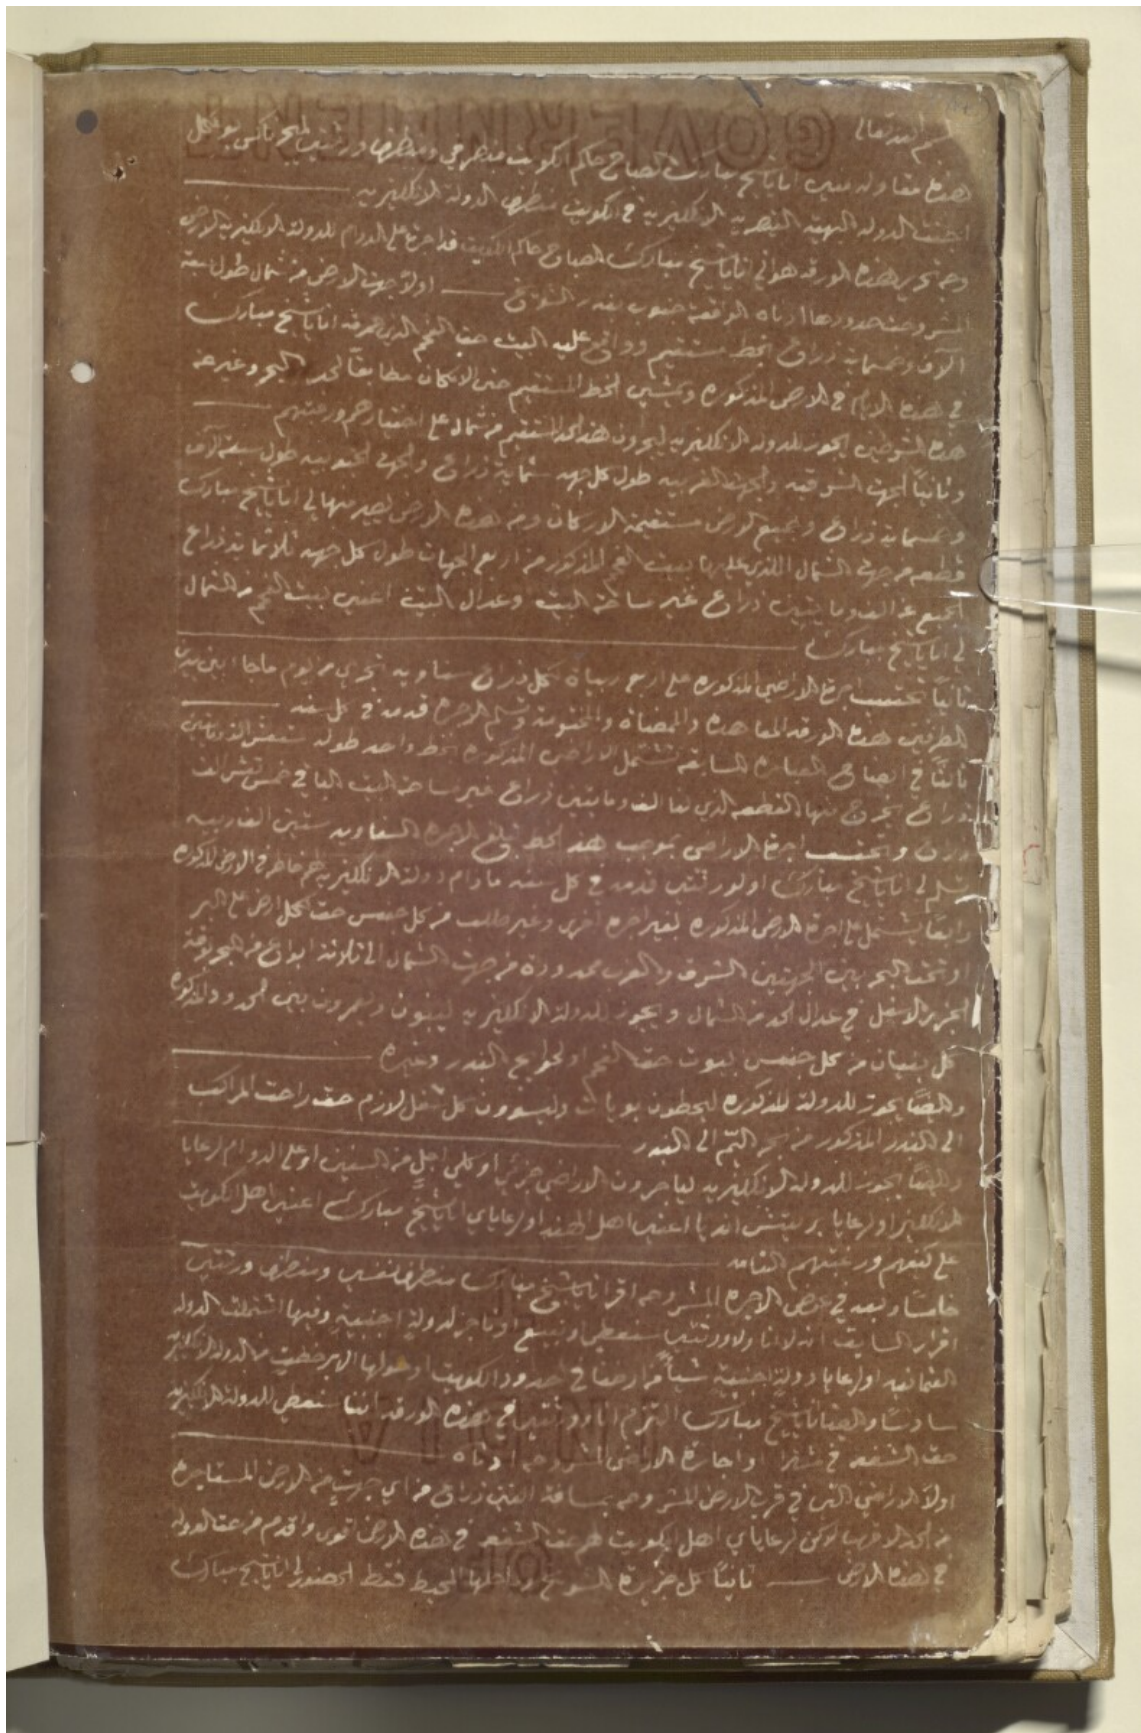 بسم الله تعالى
هذه مقاوله مني انا شيخ مبارك الصباح حاكم كويت منطرفي ومنطرف ورثتي لميجر ناكس بوكل
اجنت الدولة البهية القيصرية الانكليزية في الكويت منطرف الدولة الانكليزية
وجه تحرير هذه الورقه هواني انا شيخ مبارك الصباح حاكم الكويت قد اجرت على الدوام للدولة الانكليزية الارض
المشروحت حدودها ادناه الواقعة جنوب بندر الشويخ اولاً جهت الارض من شمال طول سبعة
الآف وخمسماية ذراع بخط مستقيم وواقع عليه البيت حق الفحم الذي انا شيخ مبارك
في هذه الايام في الارض المذكوره ويمشي الخط المستقيم حتى الامكان مطابقاً لحد البحر وغير
هذه الشرطين يجوز للدولة الانكليزية ليجرون هذا الحد المستقيم من شمال على اختيارهم ورغبتهم
وثانياً الجهت الشرقيه والجهت الغربيه طول كل جهه ستماية ذراع والجهت الجنوبيه طول سبعة آلاف
وخمسماية ذراع وجميع الارض مستقيمة الاركان ومن هذه الارض يصير منها لي انا شيخ مبارك
قطعه من جهت الشمال الذي عليها بيت الفحم المذكور من اربع الجهات طول كل جهه ثلاثماية ذراع
الجميع الف ومايتين ذراع غير ساحة البيت وعدال البيت اعني بيت الفحم من الشمال
لي انا شيخ مبارك
ثانياً تحتسب اجرة الاراضي المذكوره على اربع ربيات كل ذراع سناويه تجري من يوم
الطرفين هذه الورقه المعاهده والممضاة والمختومة وتسلم الاجرة قدمه في كل سنه
ثالثاً في ايضاح العباره السابقة تشتمل الاراضي المذكوره بخط واحد طوله ستعشر الف ومايتين
ذراع يخرج منها القطعه الذي لنا الف ومايتين ذراع غير ساحة البيت الباقي خمستعشر الف
ذراع وتحتسب اجرة الاراضي بموجب هذا الخط تبلغ الاجره السناويه ستين الف ربيه
تسلم لي انا شيخ مبارك او لورثتي قدمه في كل سنه مادام دولة الانكليزيه لهم خاطر في الارض المذكوره
رابعاً يشتمل على اجرة الارض المذكوره بغير اجره اخرى وغير طلب من كل جنس حق كل ارض على البر
او تحت البحر بين الجهتين الشرق والغرب محدودة من جهت الشمال الى ثلاثة ابواع من البحر لاقة
الجزر الاسفل في عدال الحد من الشمال ويجوز للدولة الانكليزيه ليبنون ويعمرون بين الحدود المذكوره
كل بنيان من كل جنس بيوت حق الفحم او لحوايج البندر وغيره
وايضاً يجوز للدولة المذكوره ليحطون بويات وليسوون كل شغل لازم حق راحت المراكب
الى البندر المذكور من بحر اليَم الى البندر
وايضاً يجوز للدولة الانكليزيه لياجرون الاراضي جزئي او كلي اجل من السنين او على الدوام لرعايا
الانكليز او لرعايا بريتش انديا اعني اهل الهند او لرعاياي انا شيخ مبارك اعني اهل الكويت
على كيفهم ورغبتهم التامه
خامساً وبعد في عوض الاجره المشروحه اقر انا شيخ مبارك منطرف نفسي ومنطرف ورثتي
اقرار السابق انه لا انا ولا ورثتي سنعطي او نبيع او ناجر لدولةٍ اجنبيةٍ وفيها اشتملت الدوله
العثمانيه او لرعايا دولةٍ اجنبيةٍ شيئاً من ارضنا في حدود الكويت او حولها الا برخصت من الدوله الانكليزيه
سادساً وايضاً انا شيخ مبارك التزم انا وورثتي في هذه الورقه اننا سنعطي للدولة الانكليزيه
حق الشفعه في شرا او اجارة الاراضي المشروحه ادناه
اولاً الاراضي التي في قرب الارض المشروحه بمسافة الفين ذراع من اي جهتٍ من الارض المستاجره
من الحد لاقيها لكن لرعاياي اهل الكويت لهم حق الشفعه في هذه الارض اقوى واقدم من حق الدوله
في هذه الارض ثانياً كل جزيرة الشويخ وساحلها المحيط فقط لحضور انا شيخ مبارك